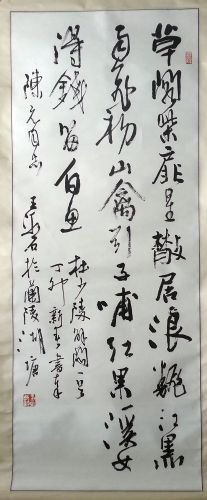 草閣柴扉星散居浪翻江黑
雨飛初山禽引子哺紅果溪女
得錢留白魚
杜少陵解悶一首
丁卯新春書奉
陳元同志
石於蘭陵湖塘